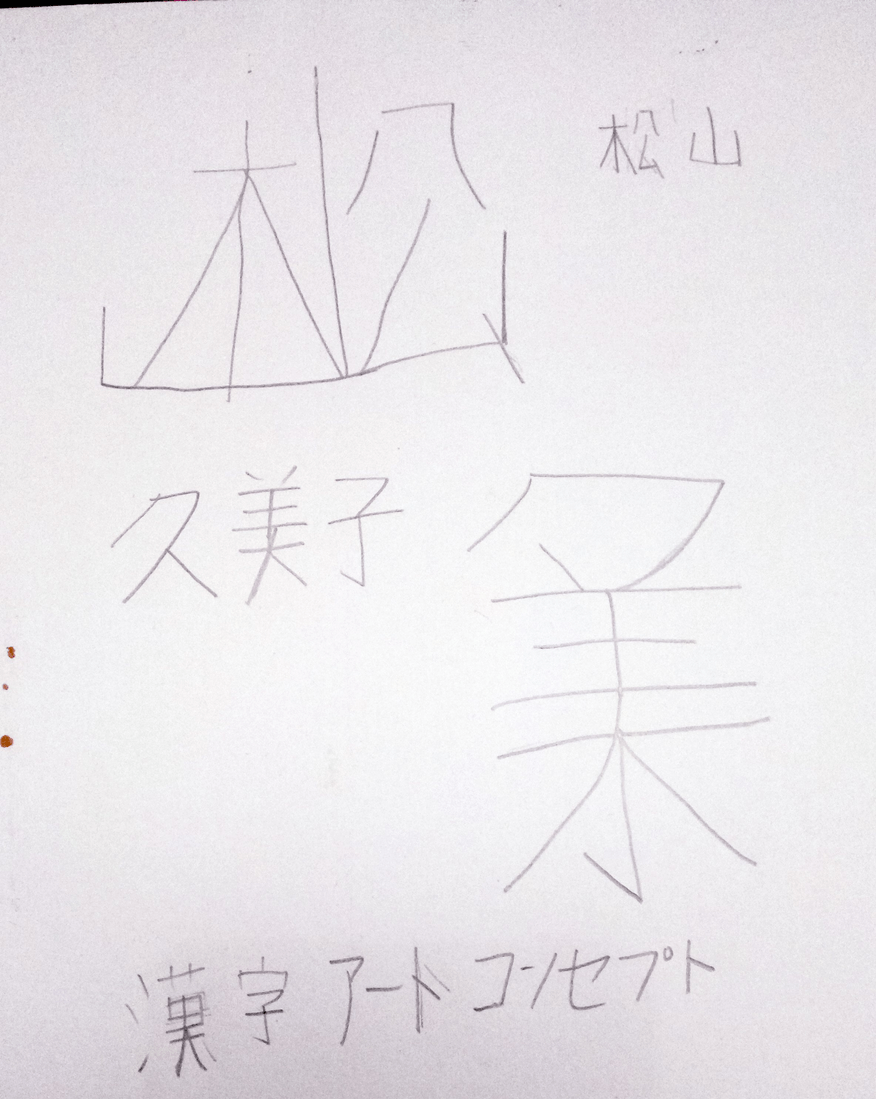 松山
久美子
漢字アートコンセプト